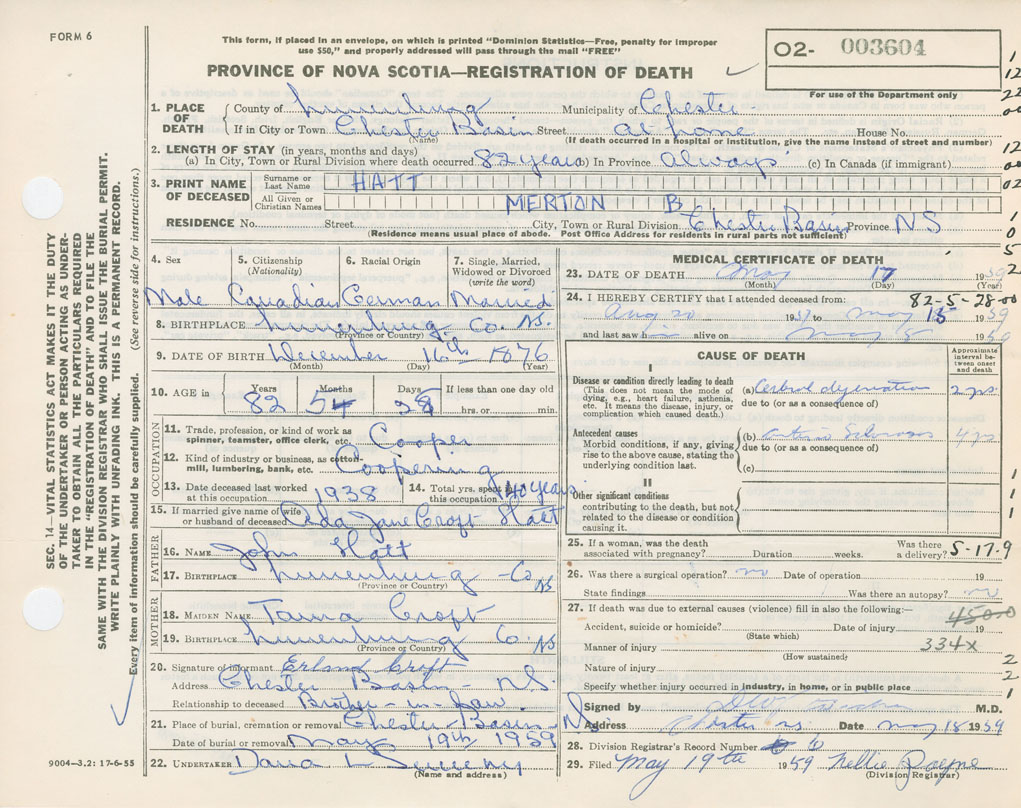 FORM 6
This form, if placed in an envelope, on which is printed "Dominion Statistics—Free, penalty for improper
use $50," and properly addressed will pass through the mail "FREE"
O2- 003604
For use of the Department only
PROVINCE OF NOVA SCOTIA—REGISTRATION OF DEATH
1. PLACE OF DEATH County of Lunenburg Municipality of Chester
If in City or Town Chester Basin Street at home House No.
(Name) (If death occurred in a hospital or institution, give the name instead of street and number)
2. LENGTH OF STAY (in years, months and days)
(a) In City, Town or Rural Division where death occurred 82 years (b) In Province always (c) In Canada (if immigrant)
3. PRINT NAME OF DECEASED
Surname or Last Name HATT
All Given or Christian Names MERTON B
RESIDENCE No. Street City, Town or Rural Division Chester Basin Province NS
(Residence means usual place of abode. Post Office Address for residents in rural parts not sufficient)
4. Sex 5. Citizenship (Nationality) 6. Racial Origin 7. Single, Married, Widowed or Divorced (write the word)
Male Canadian German Married
8. BIRTHPLACE Lunenburg Co. NS.
(Province or Country)
9. DATE OF BIRTH December 16th 1876
(Month) (Day) (Year)
10. AGE in Years Months Days If less than one day old
82 54 28 hrs. or min.
OCCUPATION
11. Trade, profession, or kind of work as spinner, teamster, office clerk, etc. Cooper
12. Kind of industry or business, as cotton-mill, lumbering, bank, etc. Coopering
13. Date deceased last worked at this occupation 1938 14. Total yrs. spent in 40 years
15. If married give name of wife or husband of deceased Ada Jane Croft Hatt
FATHER
16. NAME John Hatt
17. BIRTHPLACE Lunenburg Co NS
(Province or Country)
MOTHER
18. MAIDEN NAME Croft
19. BIRTHPLACE Lunenburg Co. NS
(Province or Country)
20. Signature of informant Erland Croft
Address Chester Basin - NS.
Relationship to deceased Brother-in-law
21. Place of burial, cremation or removal Chester Basin NS
Date of burial or removal May 19th 1959
22. UNDERTAKER Dana L Sweeny
(Name and address)
9004—3.2: 17-6-55
MEDICAL CERTIFICATE OF DEATH
23. DATE OF DEATH May 17 1959
(Month) (Day) (Year)
24. I HEREBY CERTIFY that I attended deceased from: 82-5-28-00
Aug 20 to May 15 1959
and last saw h alive on May
CAUSE OF DEATH
Approximate interval between onset and death
I
Disease or condition directly leading to death
(This does not mean the mode of dying, e.g., heart failure, asthenia, etc. It means the disease, injury, or complication which caused death.)
(a) 2 yrs.
due to (or as a consequence of)
Antecedent causes
Morbid conditions, if any, giving rise to the above cause, stating the underlying condition last.
(b) 4 yrs
due to (or as a consequence of)
(c)
II
Other significant conditions
contributing to the death, but not related to the disease or condition causing it.
25. If a woman, was the death associated with pregnancy? Duration weeks. Was there a delivery? 5-17.9
26. Was there a surgical operation? no Date of operation 19
State findings Was there an autopsy? no
27. If death was due to external causes (violence) fill in also the following:—
4500
Accident, suicide or homicide? Date of injury 19
(State which)
Manner of injury 334X
(How sustained)
Nature of injury
Specify whether injury occurred in industry, in home, or in public place
Signed by M.D.
Address Chester NS. Date May 18 1959
28. Division Registrar's Record Number 6
29. Filed May 19th 1959 Nellie Payne
(Division Registrar)
SEC. 14—VITAL STATISTICS ACT MAKES IT THE DUTY
OF THE UNDERTAKER OR PERSON ACTING AS UNDER-
TAKER TO OBTAIN ALL THE PARTICULARS REQUIRED
IN THE "REGISTRATION OF DEATH" AND TO FILE THE
SAME WITH THE DIVISION REGISTRAR WHO SHALL ISSUE THE BURIAL PERMIT.
WRITE PLAINLY WITH UNFADING INK. THIS IS A PERMANENT RECORD.
Every item of information should be carefully supplied. (See reverse side for instructions.)